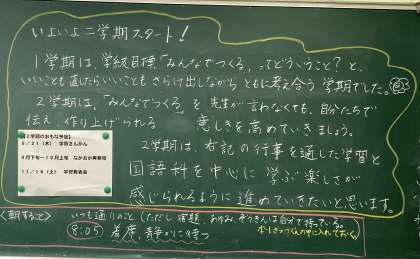 いよいよ二学期スタート!
1学期は、学級目標「みんなでつくる」ってどういうこと?と、
いいことも直したらいいことも さらけ出しながら ともに考え合う 学期でした。
2学期は、「みんなでつくる」を 先生が言わなくても、自分たちで
伝え、作り上げられる 意しきを高めていきましょう。
2学期は、右記の行事を通した学習と
国語科を中心に 学ぶ楽しさが
感じられるように進めていきたいと思います。
【2学期のおもな予定】
9/21(木) 学習さんかん
9月下旬~10月上旬 なかおか再発見
11/18(土) 学習発表会
<朝すること> いつも通りのこと(ただし 宿題、おけいこ、ぞうきんは自分で持っている。
ボートさっくんの中に入れておく)
8:05 着席、静かに待つ